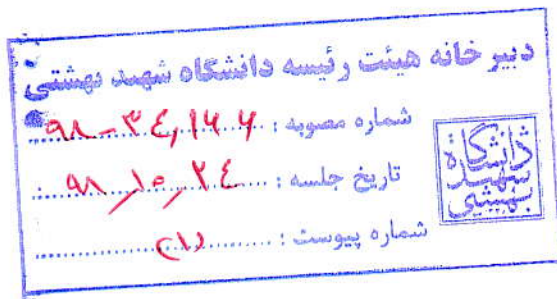 دبیرخانه هیئت رئیسه دانشگاه شهید بهشتی
شماره مصوبه : ۹۸-۳۴,۱۶۶
تاریخ جلسه : ۹۸,۱۰,۲۴
شماره پیوست : (۱)
دانشگاه
شهید
بهشتی